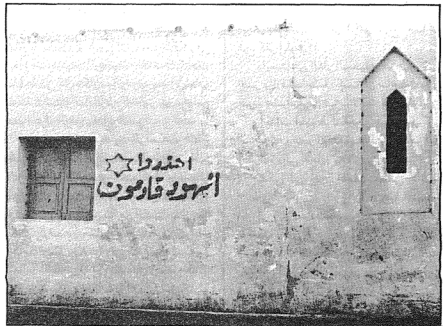 احذروا
اليهود قادمون